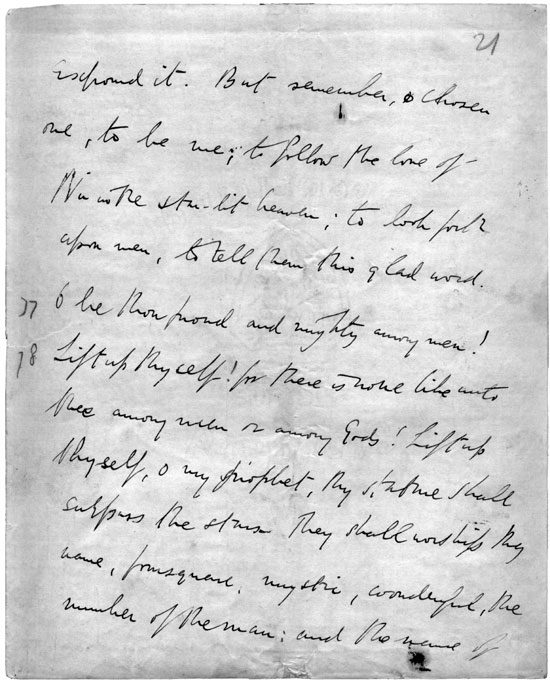 21
expound it. But remember, o chosen
one, to be me; to follow the love of
Nu in the star-lit heaven; to look forth
upon men, to tell them this glad word.
77 O be thou proud and mighty among men!
78 Lift up thyself! for there is none like unto
thee among men or among Gods! Lift up
thyself, o my prophet, thy stature shall
surpass the stars. They shall worship thy
name, foursquare, mystic, wonderful, the
number of the man: and the name of